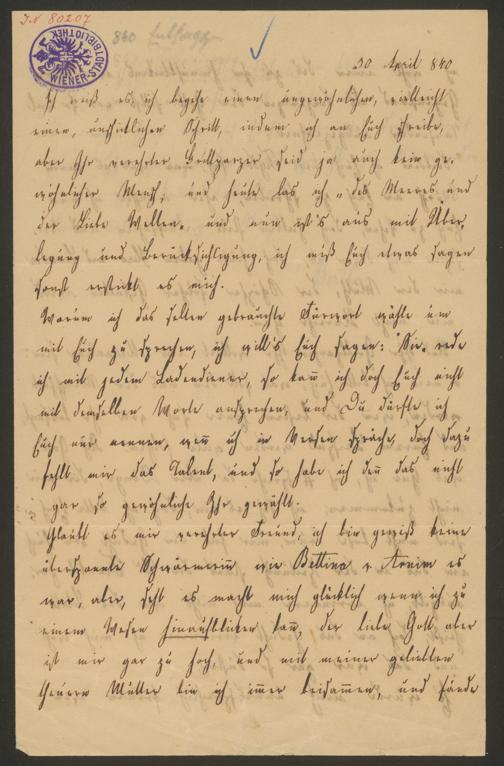 J.N. 80207
WIENER-STADTBIBLIOTHEK
30 April 840
Ich weiß es, ich begehe einen ungewöhnlichen, vielleicht
einen, unschicklichen Schritt, indem ich an Euch schreibe,
aber Ihr verehrter Grillparzer seid ja auch kein ge,
wöhnlicher Mensch, und heute las ich „des Meeres und
der Liebe Wellen„ und nun ist's aus mit Über,
legung und Berücksichtigung, ich muß Euch etwas sagen
sonst erstickt es mich.
Warum ich das selten gebrauchte Fürwort wähle um
mit Euch zu sprechen, ich will's Euch sagen: „Sie„ rede
ich mit jedem Ladendiener, so kann ich doch Euch nicht
mit demselben Worte ansprechen, und Du dürfte ich
Euch nur nennen, wenn ich in Versen spräche, doch dazu
fehlt mir das Talent, und so habe ich denn das nicht
gar so gewöhnliche Ihr gewählt.
Glaubt es mir verehrter Freund, ich bin gewiß keine
überspannte Schwärmerin wie Bettina v Arnim es
war, aber, seht es macht mich glücklich wenn ich zu
einem Wesen hinaufblicken kann, der liebe Gott aber
ist mir gar zu hoch, und mit meiner geliebten
theuern Mutter bin ich immer beisammen, und fände